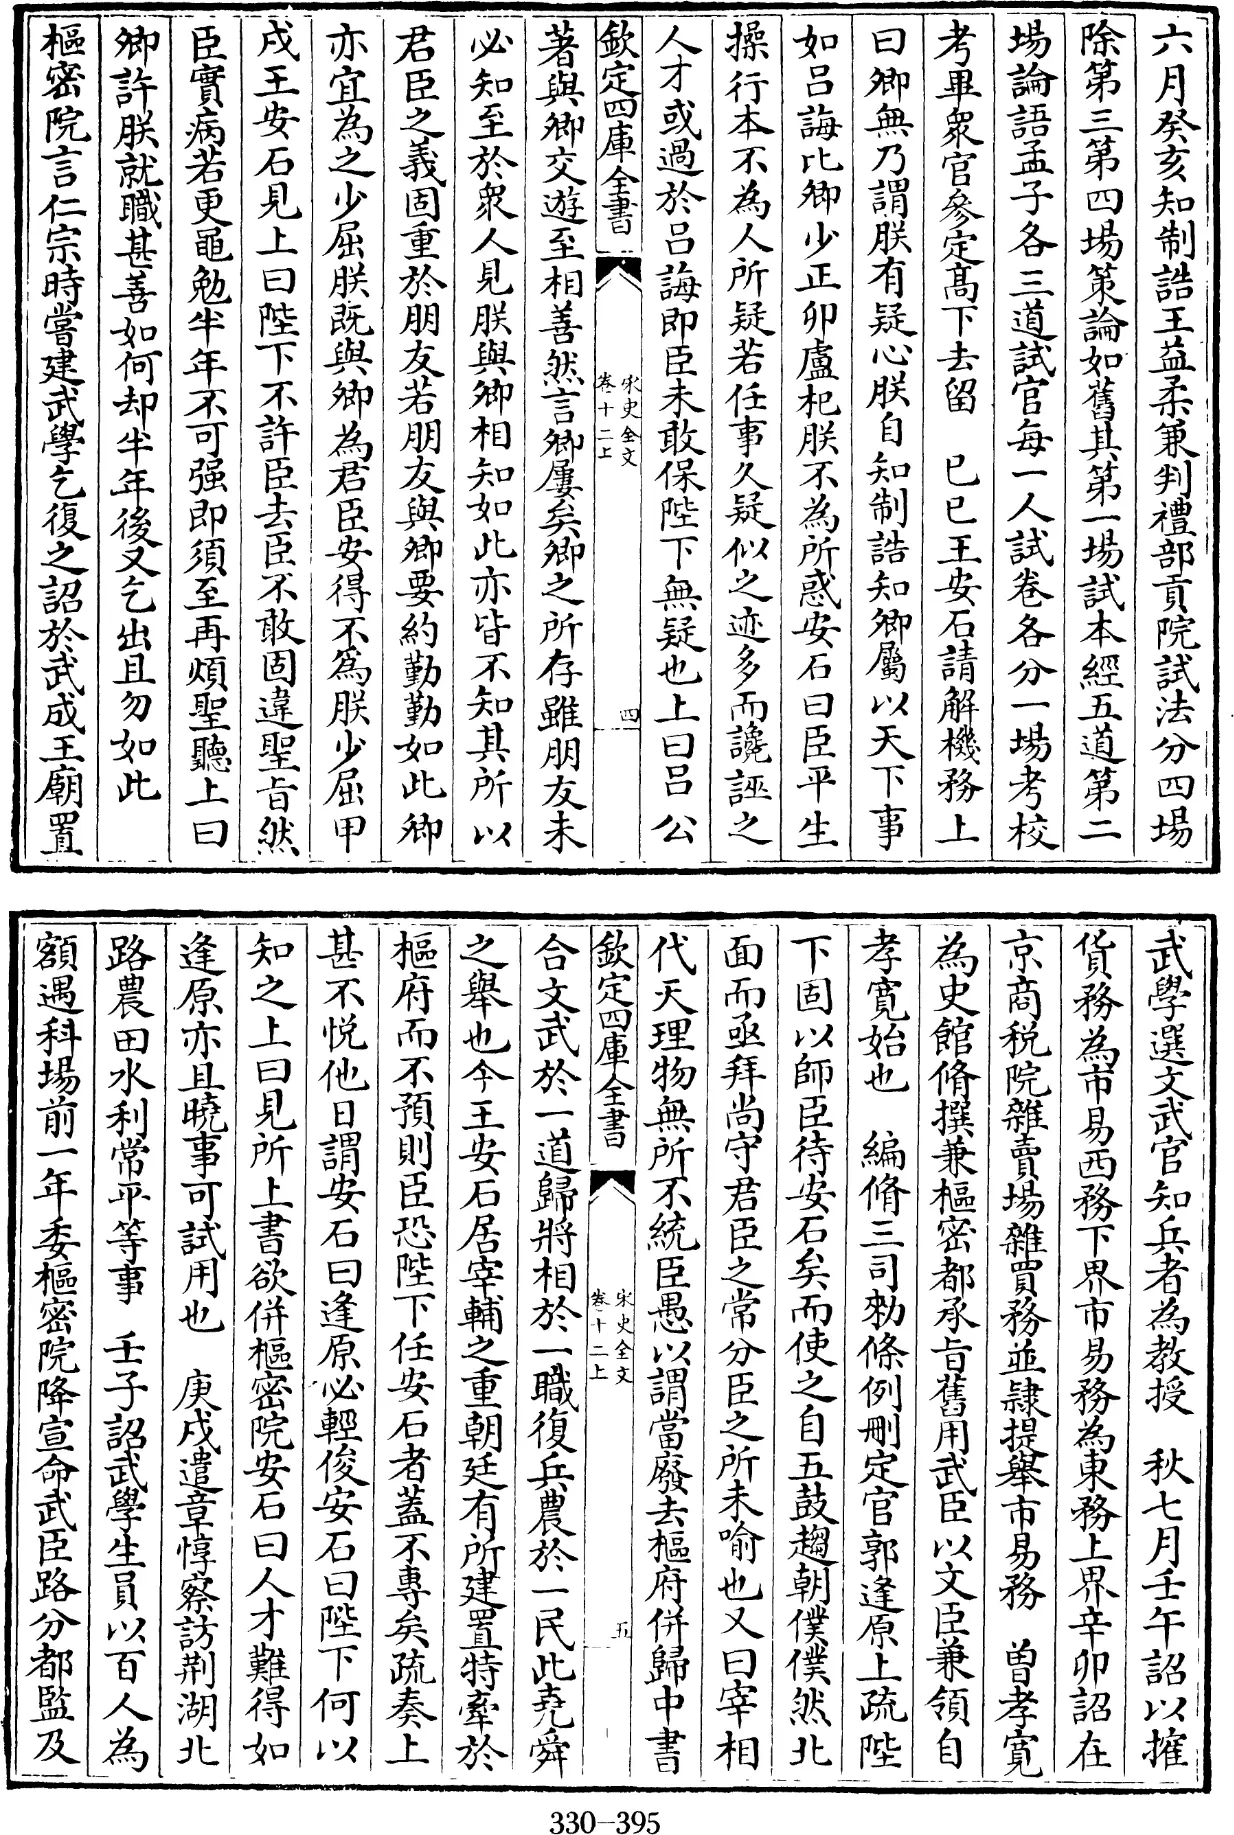 六月癸亥知制誥王益柔兼判禮部貢院試法分四場
除第三第四場策論如舊其第一場試本經五道第二
場論語孟子各三道試官每一人試卷各分一場考校
考畢衆官參定髙下去留　已巳王安石請解機務上
曰卿無乃謂朕有疑心朕自知制誥知卿屬以天下事
如吕誨比卿少正卯盧杞朕不為所惑安石曰臣平生
操行本不為人所疑若任事久疑似之迹多而讒誣之
人才或過於吕誨即臣未敢保陛下無疑也上曰吕公
欽定四庫全書
宋史全文
卷十二上
四
著與卿交遊至相善然言卿屢矣卿之所存雖朋友未
必知至於衆人見朕與卿相知如此亦皆不知其所以
君臣之義固重於朋友若朋友與卿要約勤勤如此卿
亦宜為之少屈朕既與卿為君臣安得不爲朕少屈甲
戌王安石見上曰陛下不許臣去臣不敢固違聖旨然
臣實病若更黽勉半年不可强即須至再煩聖聽上曰
卿許朕就職甚善如何却半年後又乞出且勿如此
樞密院言仁宗時嘗建武學乞復之詔於武成王廟置
武學選文武官知兵者為教授　秋七月壬午詔以㩁
貨務為市易西務下界市易務為東務上界辛卯詔在
京商税院雜賣場雜買務並隷提舉市易務　曾孝寛
為史館脩撰兼樞密都承旨舊用武臣以文臣兼領自
孝寛始也　編脩三司勑條例刪定官郭逢原上疏陛
下固以師臣待安石矣而使之自五鼓趨朝僕僕然北
面而亟拜尚守君臣之常分臣之所未喻也又曰宰相
代天理物無所不統臣愚以謂當廢去樞府併歸中書
欽定四庫全書
宋史全文
卷十二上
五
合文武於一道歸將相於一職復兵農於一民此堯舜
之舉也今王安石居宰輔之重朝廷有所建置特牽於
樞府而不預則臣恐陛下任安石者蓋不專矣疏奏上
甚不悦他日謂安石曰逢原必輕俊安石曰陛下何以
知之上曰見所上書欲併樞密院安石曰人才難得如
逢原亦且曉事可試用也　庚戌遣章惇察訪荆湖北
路農田水利常平等事　壬子詔武學生員以百人為
額遇科場前一年委樞密院降宣命武臣路分都監及
330-395